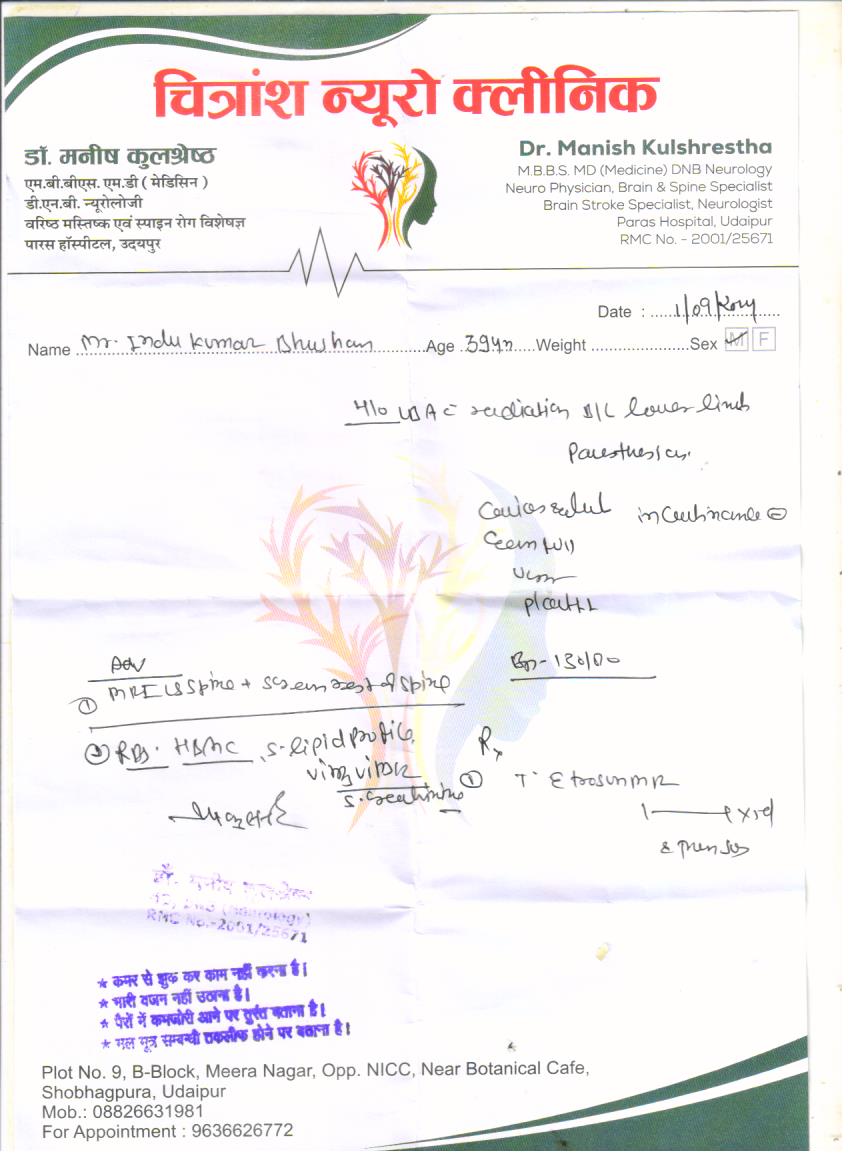 चित्रांश न्यूरो क्लीनिक
डॉ. मनीष कुलश्रेष्ठ
एम.बी.बीएस. एम.डी ( मेडिसिन )
डी.एन.बी. न्यूरोलोजी
वरिष्ठ मस्तिष्क एवं स्पाइन रोग विशेषज्ञ
पारस हॉस्पीटल, उदयपुर
Dr. Manish Kulshrestha
M.B.B.S. MD (Medicine) DNB Neurology
Neuro Physician, Brain & Spine Specialist
Brain Stroke Specialist, Neurologist
Paras Hospital, Udaipur
RMC No. - 2001/25671
Date : 1/09/
Name Mr. Indu Kumar Bhushan Age 39yr Weight Sex M F
H/o LBA radiation B/L lower limb
incontinance
Adv
① MRI LS Spine + Screen rest of Spine
② RBS. HBA1C, S-lipid profile,
S. creatinine
Rx
① T.
डॉ. मनीष कुलश्रेष्ठ
MD, DNB (Neurology)
RMC No.-2001/25671
★ कमर से झुक कर काम नहीं करना है।
★ भारी वजन नहीं उठाना है।
★ पैरों में कमजोरी आने पर तुरंत बताना है।
★ मल मूत्र सम्बन्धी तकलीफ होने पर बताना है।
Plot No. 9, B-Block, Meera Nagar, Opp. NICC, Near Botanical Cafe,
Shobhagpura, Udaipur
Mob.: 08826631981
For Appointment : 9636626772